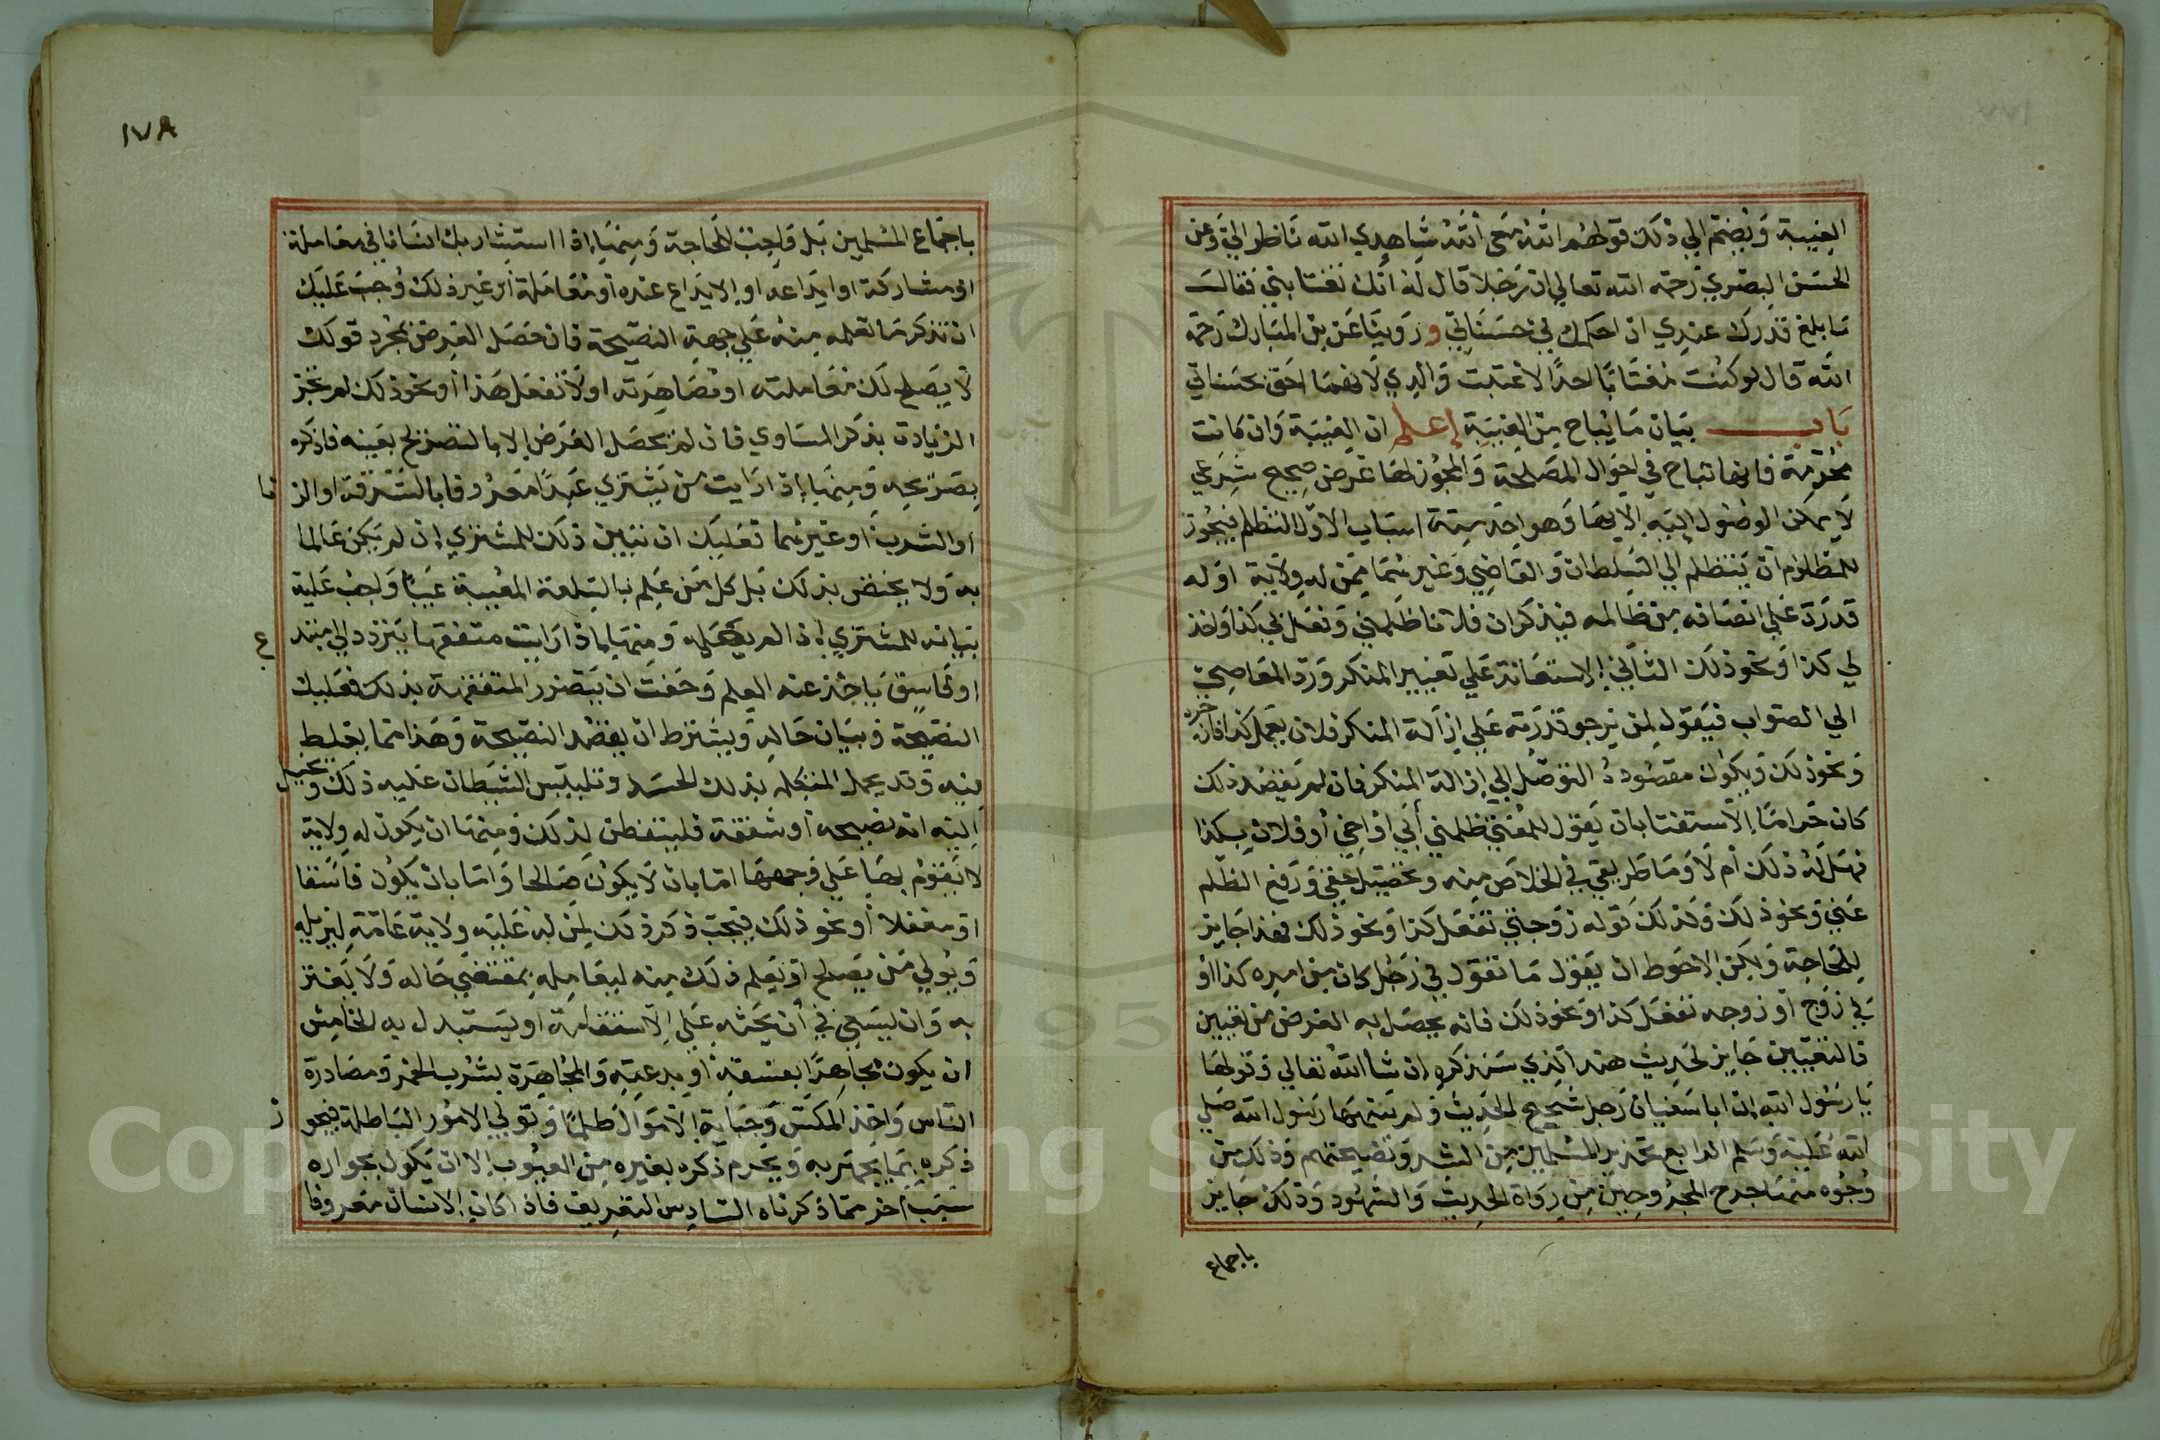 الغيبة ويضم الي ذلك قولهم الله معي الله شاهدي الله ناظر الي وعن
الحسن البصري رحمه الله تعالي ان رجلا قال له انك تغتابني فقال
ما بلغ قدرك عندي ان احكمك في حسناتي وروينا عن بن المبارك رحمه
الله قال لو كنت مغتابا احدا لاغتبت والدي لانهما احق بحسناتي
باب بيان ما يباح من الغيبة إعلم ان الغيبة وان كانت
محرمة فانها تباح في احوال المصلحة والمجوز لها غرض صحيح شرعي
لا يمكن الوصول اليه الا بها وهو احد ستة اسباب الاول التظلم فيجوز
للمظلوم أن يتظلم الي السلطان والقاضي وغيرهما ممن له ولاية او له
قدرة علي انصافه من ظالمه فيذكر ان فلانا ظلمني وفعل بي كذا واخذ
لي كذا ونحو ذلك الثاني الاستعانة علي تغيير المنكر ورد المعاصي
الي الصواب فيقول لمن يرجو قدرته علي إزالة المنكر فلان يعمل كذا فازجره
ونحو ذلك ويكون مقصوده التوصل الي إزالة المنكر فان لم يقصد ذلك
كان حراما الاستفتا بان يقول للمفتي ظلمني أبي او اخي أو فلان بكذا
فهل له ذلك أم لا وما طريقي في الخلاص منه وتحصيل حقي ورفع الظلم
عني ونحو ذلك وكذلك قوله زوجتي تفعل كذا ونحو ذلك فهذا جايز
للحاجة ولكن الاحوط ان يقول ما تقول في رجل كان من امره كذا او
في زوج أو زوجه تفعل كذا ونحو ذلك فانه يحصل به الغرض من تعيين
فالتعيين جايز لحديث هند الذي سنذكره ان شا الله تعالي وقولها
يا رسول الله ان ابا سفيان رجل شحيح الحديث ولم ينهها رسول الله صلي
الله عليه وسلم الرابع تحذير المسلمين من الشر ونصيحتهم وذلك من
وجوه منها جرح المجروحين من رواة الحديث والشهود وذلك جايز
باجماع
١٧٨
باجماع المسلمين بل واجب للحاجة ومنها إذا استشارك انسانا في معاملة
او مشاركة او ايداعه او الايداع عنده أو معاملة أو غير ذلك وجب عليك
ان تذكر ما تعلمه منه علي جهة النصيحة فان حصل الغرض بمجرد قولك
لا يصلح لك معاملته او مصاهرته او لا تفعل هذا أو نحو ذلك لم تجز
الزيادة بذكر المساوي فان لم يحصل الغرض إلا بالتصريح بعينه فاذكره
بصريحه ومنها إذا رايت من يشتري عبدا معروفا بالسرقة او الزنا
او الشرب أو غيرهما فعليك ان تبين ذلك للمشتري إن لم يكن عالما
به ولا يختص بذلك بل كل من علم بالسلعة المعيبة عيبا وجب عليه
بيانه للمشتري إذا لم يعلمه ومنها إذا رايت متفقها يتردد الي مبتدع
او فاسق ياخذ عنه العلم وخفت ان يتضرر المتفقهة بذلك فعليك
النصيحة وبيان حاله ويشترط ان يقصد النصيحة وهذا مما يغلط
فيه وقد يحمل المتكلم بذلك الحسد وتلبيس الشيطان عليه ذلك ويخيل
إليه انه نصيحه أو شفقة فليتفطن لذلك ومنها ان يكون له ولاية
لا يقوم بها علي وجهها اما بان لا يكون صالحا واما بان يكون فاسقا
او مغفلا أو نحو ذلك فيجب ذكر ذلك لمن له عليه ولاية عامة ليزيله
ويولي من يصلح او يعلم ذلك منه ليعامله بمقتضي حاله ولا يغتر
به وان يسعي في أن يحثه علي الاستقامة او يستبدل به الخامس
ان يكون مجاهرا بفسقه أو بدعته والمجاهرة بشرب الخمر ومصادرة
الناس واخذ المكس وجباية الاموال ظلما وتولي الامور الباطلة فيجوز
ذكره بما يجهر به ويحرم ذكره بغيره من العيوب إلا ان يكون بجواره
سبب أخر مما ذكرناه السادس التعريف فاذا كان الانسان معروفا